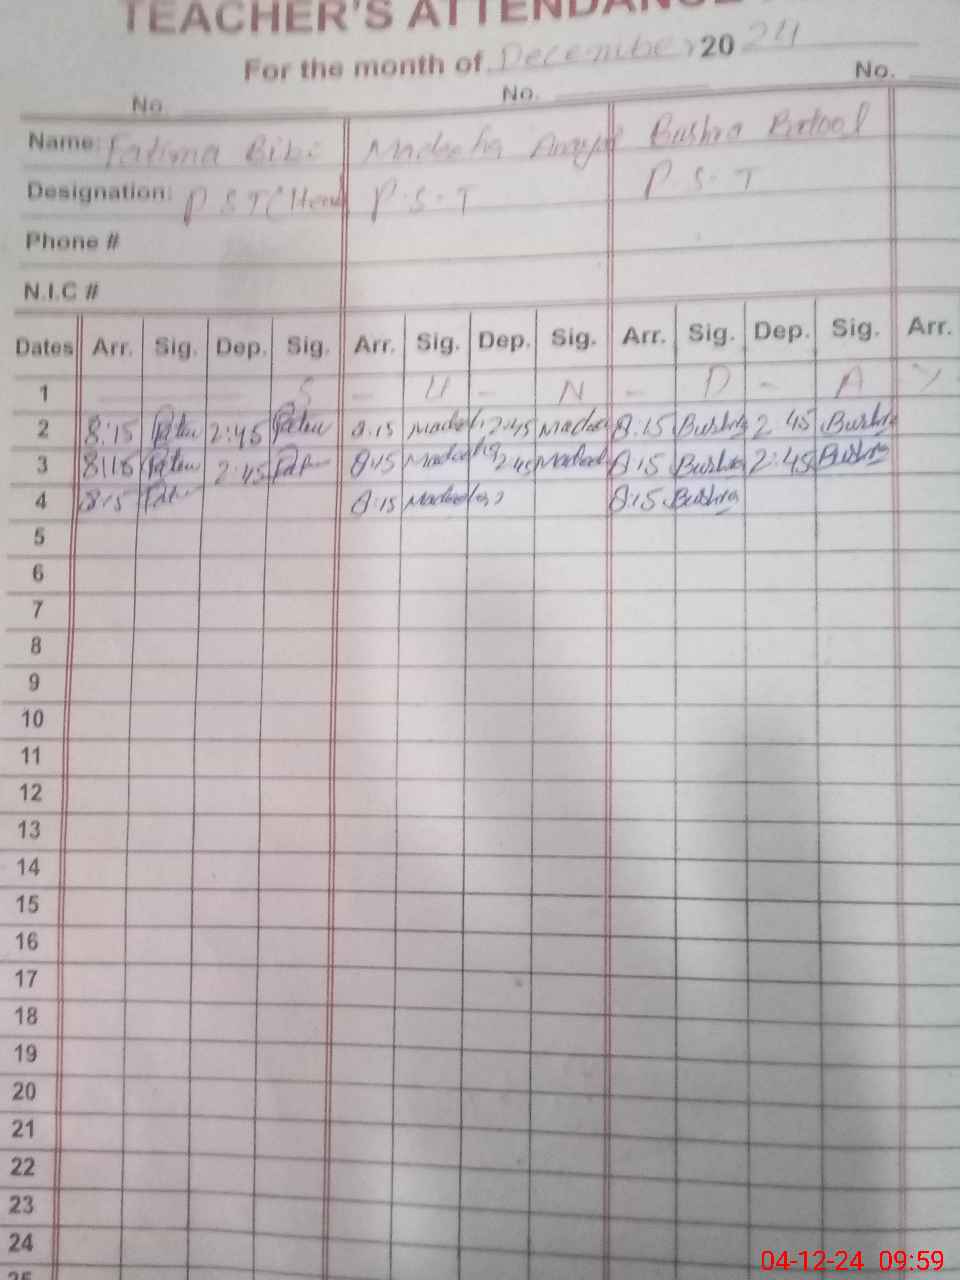 TEACHER'S ATTENDANCE
For the month of December, 2024
No. No. No.
Name: Fatima Bibi Madeeha Bushra Batool
Designation: P S T (Head P.S.T P.S.T
Phone #
N.I.C #
Dates Arr. Sig. Dep. Sig. Arr. Sig. Dep. Sig. Arr. Sig. Dep. Sig. Arr.
1 S - U - N - D - A Y
2 8:15 2:45 8:15 2:45 8:15 Bushra 2:45 Bushra
3 8:15 2:45 8:15 2:45 8:15 Bushra 2:45 Bushra
4 8:15 8:15 8:15 Bushra
5
6
7
8
9
10
11
12
13
14
15
16
17
18
19
20
21
22
23
24
25
04-12-24 09:59